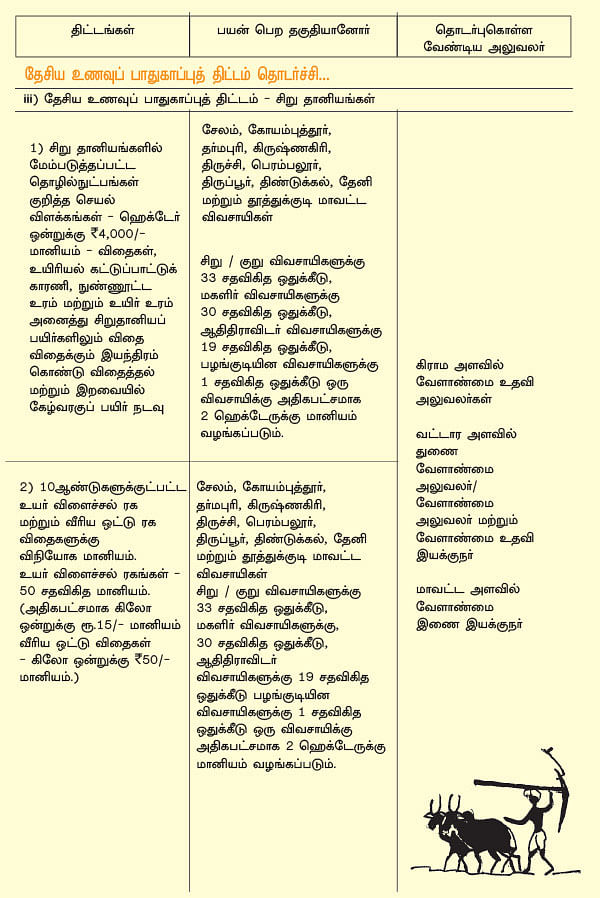 திட்டங்கள்
பயன் பெற தகுதியானோர்
தொடர்புகொள்ள
வேண்டிய அலுவலர்
தேசிய உணவுப் பாதுகாப்புத் திட்டம் தொடர்ச்சி...
iii) தேசிய உணவுப் பாதுகாப்புத் திட்டம் - சிறு தானியங்கள்
1) சிறு தானியங்களில்
மேம்படுத்தப்பட்ட
தொழில்நுட்பங்கள்
குறித்த செயல்
விளக்கங்கள் - ஹெக்டேர்
ஒன்றுக்கு ₹4,000/-
மானியம் - விதைகள்,
உயிரியல் கட்டுப்பாட்டுக்
காரணி, நுண்ணூட்ட
உரம் மற்றும் உயிர் உரம்
அனைத்து சிறுதானியப்
பயிர்களிலும் விதை
விதைக்கும் இயந்திரம்
கொண்டு விதைத்தல்
மற்றும் இறவையில்
கேழ்வரகுப் பயிர் நடவு
சேலம், கோயம்புத்தூர்,
தர்மபுரி, கிருஷ்ணகிரி,
திருச்சி, பெரம்பலூர்,
திருப்பூர், திண்டுக்கல், தேனி
மற்றும் தூத்துக்குடி மாவட்ட
விவசாயிகள்
சிறு / குறு விவசாயிகளுக்கு
33 சதவிகித ஒதுக்கீடு,
மகளிர் விவசாயிகளுக்கு
30 சதவிகித ஒதுக்கீடு,
ஆதிதிராவிடர் விவசாயிகளுக்கு
19 சதவிகித ஒதுக்கீடு,
பழங்குடியின விவசாயிகளுக்கு
1 சதவிகித ஒதுக்கீடு ஒரு
விவசாயிக்கு அதிகபட்சமாக
2 ஹெக்டேருக்கு மானியம்
வழங்கப்படும்.
2) 10ஆண்டுகளுக்குட்பட்ட
உயர் விளைச்சல் ரக
மற்றும் வீரிய ஒட்டு ரக
விதைகளுக்கு
விநியோக மானியம்.
உயர் விளைச்சல் ரகங்கள் -
50 சதவிகித மானியம்.
(அதிகபட்சமாக கிலோ
ஒன்றுக்கு ரூ.15/- மானியம்
வீரிய ஒட்டு விதைகள்
- கிலோ ஒன்றுக்கு ₹50/-
மானியம்.)
சேலம், கோயம்புத்தூர்,
தர்மபுரி, கிருஷ்ணகிரி,
திருச்சி, பெரம்பலூர்,
திருப்பூர், திண்டுக்கல், தேனி
மற்றும் தூத்துக்குடி மாவட்ட
விவசாயிகள்
சிறு / குறு விவசாயிகளுக்கு
33 சதவிகித ஒதுக்கீடு,
மகளிர் விவசாயிகளுக்கு,
30 சதவிகித ஒதுக்கீடு,
ஆதிதிராவிடர்
விவசாயிகளுக்கு 19 சதவிகித
ஒதுக்கீடு பழங்குடியின
விவசாயிகளுக்கு 1 சதவிகித
ஒதுக்கீடு ஒரு விவசாயிக்கு
அதிகபட்சமாக 2 ஹெக்டேருக்கு
மானியம் வழங்கப்படும்.
கிராம அளவில்
வேளாண்மை உதவி
அலுவலர்கள்
வட்டார அளவில்
துணை
வேளாண்மை
அலுவலர்/
வேளாண்மை
அலுவலர் மற்றும்
வேளாண்மை உதவி
இயக்குநர்
மாவட்ட அளவில்
வேளாண்மை
இணை இயக்குநர்